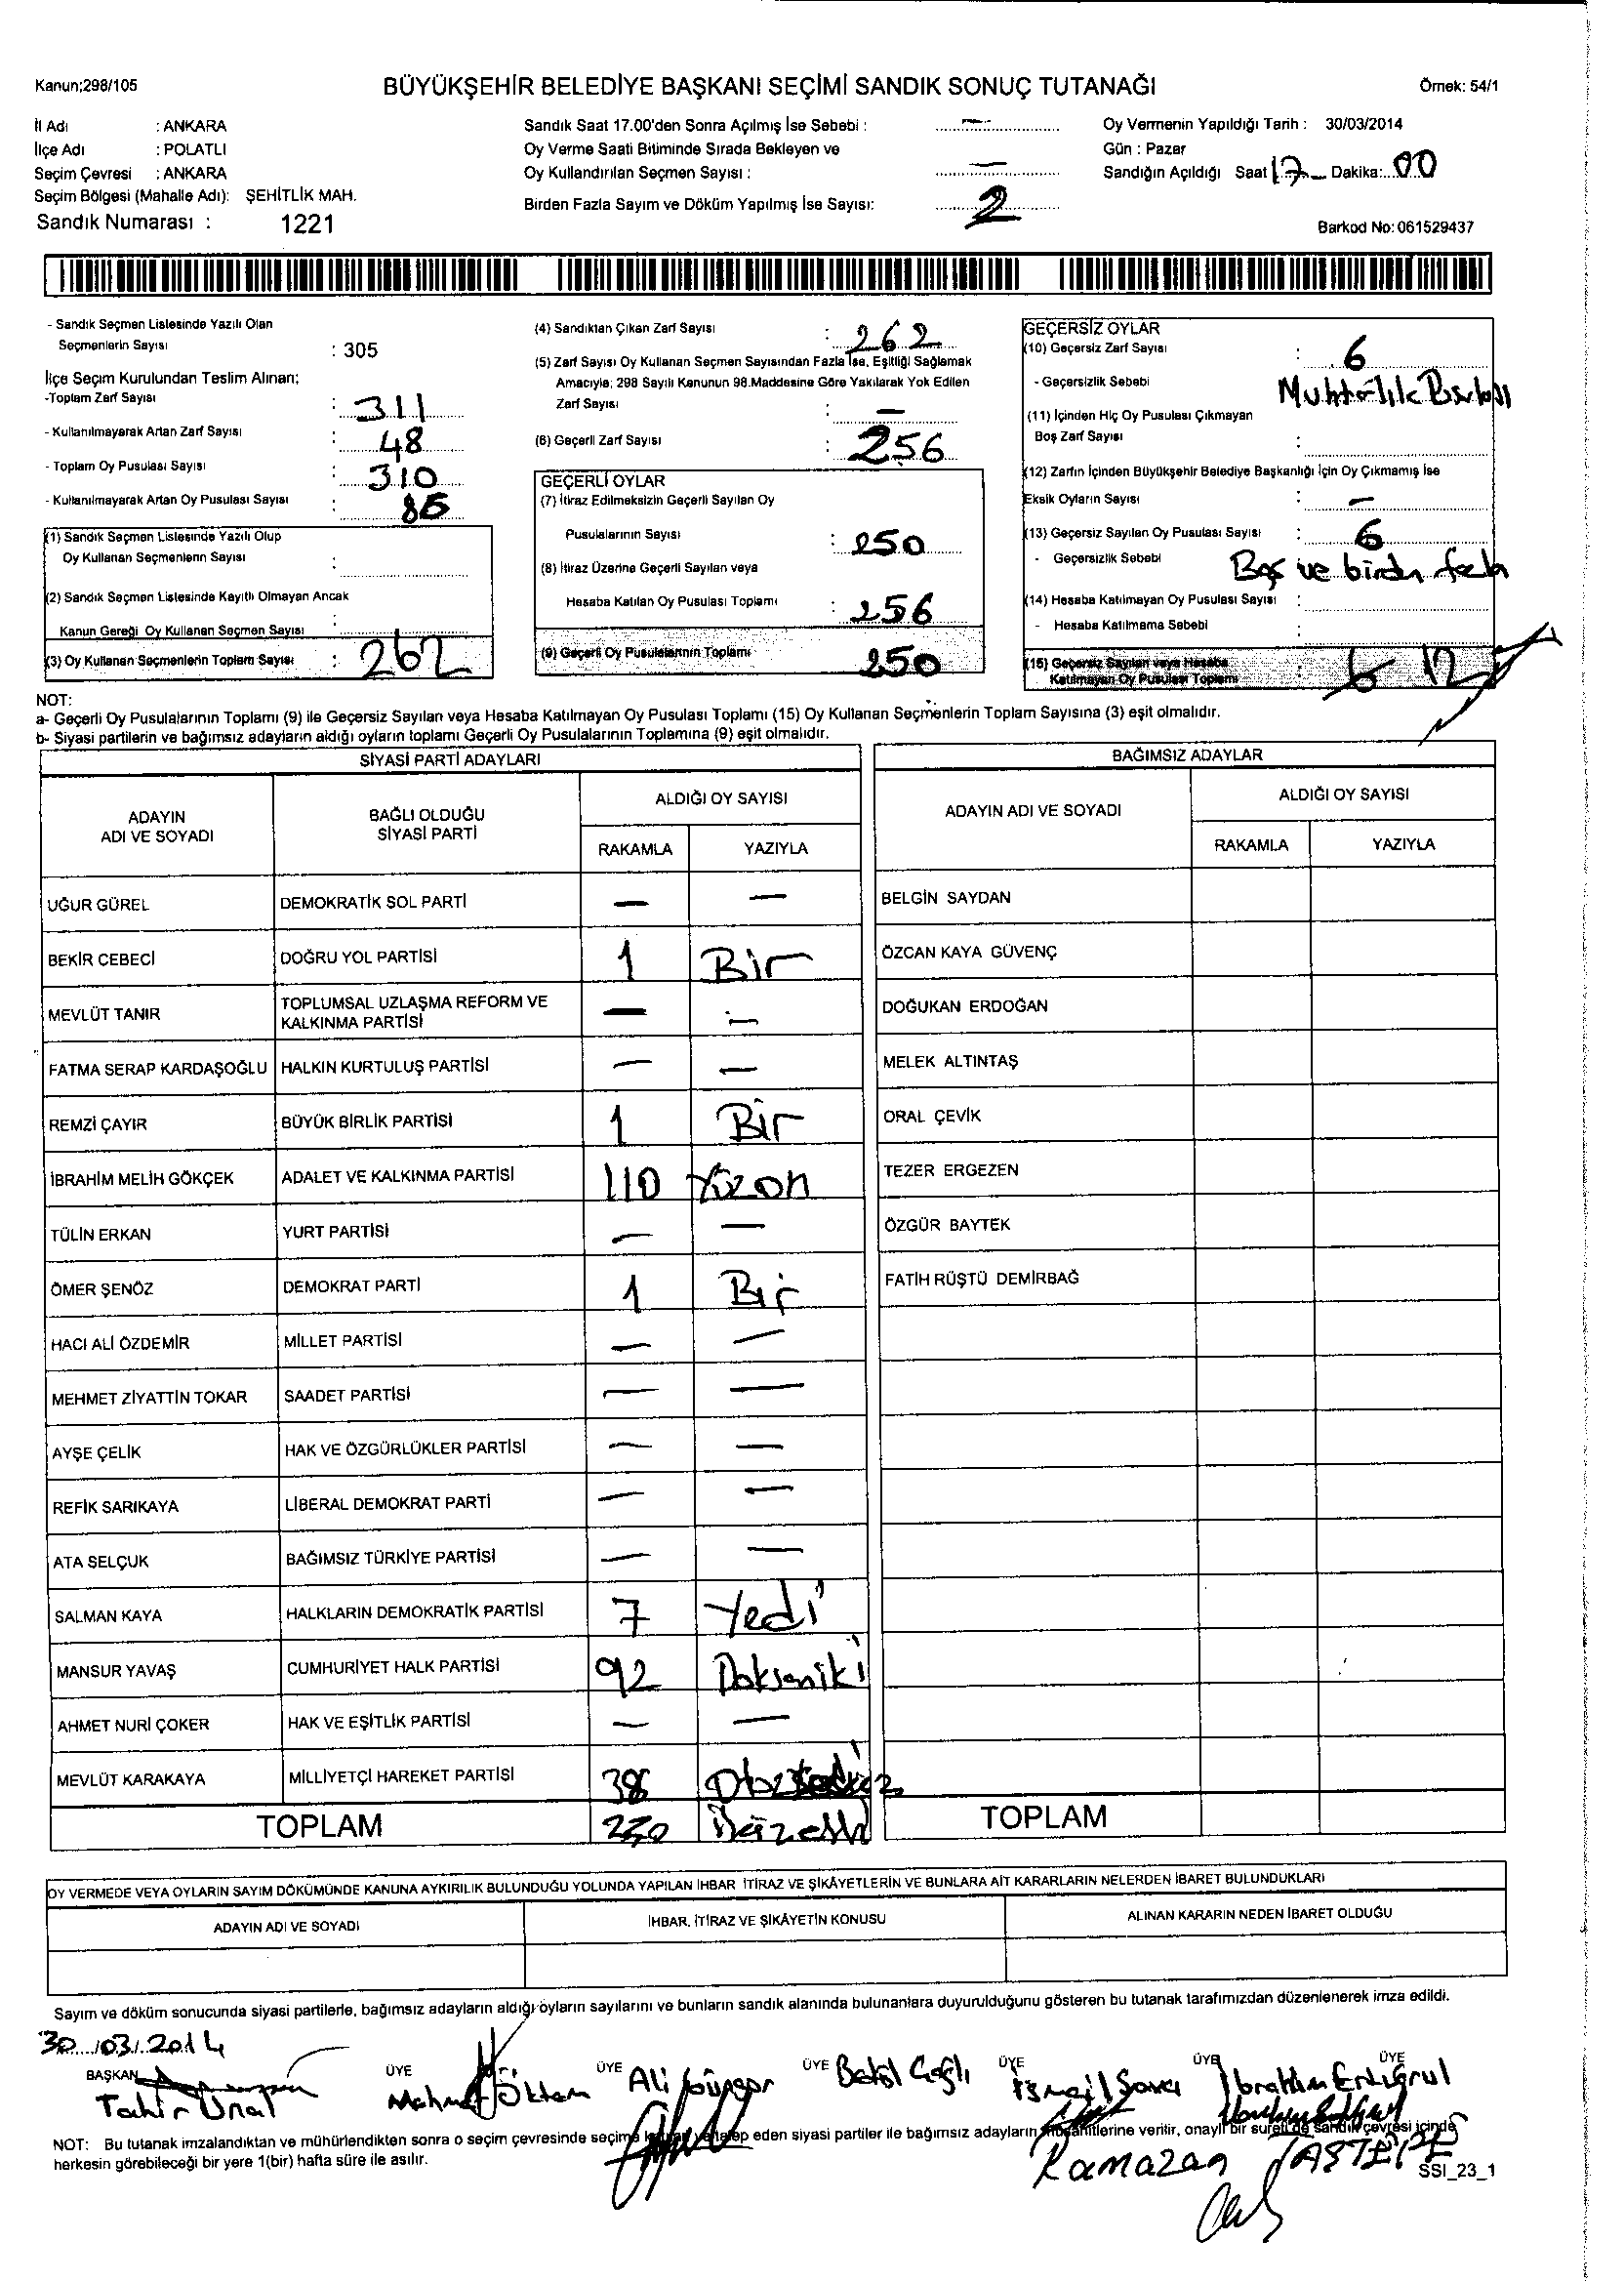 Kanun;298/105
BÜYÜKŞEHİR BELEDİYE BAŞKANI SEÇİMİ SANDIK SONUÇ TUTANAĞI
Örnek: 54/1
İl Adı : ANKARA
İlçe Adı : POLATLI
Seçim Çevresi : ANKARA
Seçim Bölgesi (Mahalle Adı): ŞEHİTLİK MAH.
Sandık Numarası : 1221
Sandık Saat 17.00'den Sonra Açılmış İse Sebebi : —
Oy Verme Saati Bitiminde Sırada Bekleyen ve
Oy Kullandırılan Seçmen Sayısı : —
Birden Fazla Sayım ve Döküm Yapılmış İse Sayısı: 2
Oy Vermenin Yapıldığı Tarih : 30/03/2014
Gün : Pazar
Sandığın Açıldığı Saat 17 Dakika: 00
Barkod No: 061529437
- Sandık Seçmen Listesinde Yazılı Olan
Seçmenlerin Sayısı : 305
İlçe Seçim Kurulundan Teslim Alınan;
-Toplam Zarf Sayısı : 311
- Kullanılmayarak Artan Zarf Sayısı : 48
- Toplam Oy Pusulası Sayısı : 310
- Kullanılmayarak Artan Oy Pusulası Sayısı :
(1) Sandık Seçmen Listesinde Yazılı Olup
Oy Kullanan Seçmenlerin Sayısı :
(2) Sandık Seçmen Listesinde Kayıtlı Olmayan Ancak
Kanun Gereği Oy Kullanan Seçmen Sayısı :
(3) Oy Kullanan Seçmenlerin Toplam Sayısı : 262
(4) Sandıktan Çıkan Zarf Sayısı : 262
(5) Zarf Sayısı Oy Kullanan Seçmen Sayısından Fazla İse, Eşitliği Sağlamak
Amacıyla; 298 Sayılı Kanunun 98.Maddesine Göre Yakılarak Yok Edilen
Zarf Sayısı : —
(6) Geçerli Zarf Sayısı : 256
GEÇERLİ OYLAR
(7) İtiraz Edilmeksizin Geçerli Sayılan Oy
Pusulalarının Sayısı : 250
(8) İtiraz Üzerine Geçerli Sayılan veya
Hesaba Katılan Oy Pusulası Toplamı : 256
(9) Geçerli Oy Pusulalarının Toplamı 250
GEÇERSİZ OYLAR
(10) Geçersiz Zarf Sayısı : 6
- Geçersizlik Sebebi Muhtarlık
(11) İçinden Hiç Oy Pusulası Çıkmayan
Boş Zarf Sayısı :
(12) Zarfın İçinden Büyükşehir Belediye Başkanlığı İçin Oy Çıkmamış İse
Eksik Oyların Sayısı : —
(13) Geçersiz Sayılan Oy Pusulası Sayısı : 6
- Geçersizlik Sebebi Boş ve birden fazla
(14) Hesaba Katılmayan Oy Pusulası Sayısı :
- Hesaba Katılmama Sebebi :
(15) Geçersiz Sayılan veya Hesaba
Katılmayan Oy Pusulası Toplamı : 6 12
NOT:
a- Geçerli Oy Pusulalarının Toplamı (9) ile Geçersiz Sayılan veya Hesaba Katılmayan Oy Pusulası Toplamı (15) Oy Kullanan Seçmenlerin Toplam Sayısına (3) eşit olmalıdır.
b- Siyasi partilerin ve bağımsız adayların aldığı oyların toplamı Geçerli Oy Pusulalarının Toplamına (9) eşit olmalıdır.
SİYASİ PARTİ ADAYLARI
ADAYIN ADI VE SOYADI
BAĞLI OLDUĞU SİYASİ PARTİ
ALDIĞI OY SAYISI
RAKAMLA YAZIYLA
UĞUR GÜREL DEMOKRATİK SOL PARTİ — —
BEKİR CEBECİ DOĞRU YOL PARTİSİ 1 Bir
MEVLÜT TANIR TOPLUMSAL UZLAŞMA REFORM VE KALKINMA PARTİSİ — —
FATMA SERAP KARDAŞOĞLU HALKIN KURTULUŞ PARTİSİ — —
REMZİ ÇAYIR BÜYÜK BİRLİK PARTİSİ 1 Bir
İBRAHİM MELİH GÖKÇEK ADALET VE KALKINMA PARTİSİ 110 Yüzon
TÜLİN ERKAN YURT PARTİSİ — —
ÖMER ŞENÖZ DEMOKRAT PARTİ 1 Bir
HACI ALİ ÖZDEMİR MİLLET PARTİSİ — —
MEHMET ZİYATTİN TOKAR SAADET PARTİSİ — —
AYŞE ÇELİK HAK VE ÖZGÜRLÜKLER PARTİSİ — —
REFİK SARIKAYA LİBERAL DEMOKRAT PARTİ — —
ATA SELÇUK BAĞIMSIZ TÜRKİYE PARTİSİ — —
SALMAN KAYA HALKLARIN DEMOKRATİK PARTİSİ 7 Yedi
MANSUR YAVAŞ CUMHURİYET HALK PARTİSİ 92 Doksaniki
AHMET NURİ ÇOKER HAK VE EŞİTLİK PARTİSİ — —
MEVLÜT KARAKAYA MİLLİYETÇİ HAREKET PARTİSİ 38 Otuzsekiz
TOPLAM 250 İkiyüzelli
BAĞIMSIZ ADAYLAR
ADAYIN ADI VE SOYADI
ALDIĞI OY SAYISI
RAKAMLA YAZIYLA
BELGİN SAYDAN
ÖZCAN KAYA GÜVENÇ
DOĞUKAN ERDOĞAN
MELEK ALTINTAŞ
ORAL ÇEVİK
TEZER ERGEZEN
ÖZGÜR BAYTEK
FATİH RÜŞTÜ DEMİRBAĞ
TOPLAM
OY VERMEDE VEYA OYLARIN SAYIM DÖKÜMÜNDE KANUNA AYKIRILIK BULUNDUĞU YOLUNDA YAPILAN İHBAR İTİRAZ VE ŞİKÂYETLERİN VE BUNLARA AİT KARARLARIN NELERDEN İBARET BULUNDUKLARI
ADAYIN ADI VE SOYADI
İHBAR, İTİRAZ VE ŞİKÂYETİN KONUSU
ALINAN KARARIN NEDEN İBARET OLDUĞU
Sayım ve döküm sonucunda siyasi partilerle, bağımsız adayların aldığı oyların sayılarını ve bunların sandık alanında bulunanlara duyurulduğunu gösteren bu tutanak tarafımızdan düzenlenerek imza edildi.
30/03/2014
BAŞKAN ÜYE ÜYE ÜYE ÜYE ÜYE ÜYE
Tahir Ünal Mahmut Öktem Ali Betül İsmail Savcı İbrahim Ertuğrul
NOT: Bu tutanak imzalandıktan ve mühürlendikten sonra o seçim çevresinde seçime talep eden siyasi partiler ile bağımsız adayların müşahitlerine verilir, onaylı bir sureti de sandık çevresi içinde
herkesin görebileceği bir yere 1(bir) hafta süre ile asılır.
Ramazan TAŞTEPE
SSI_23_1